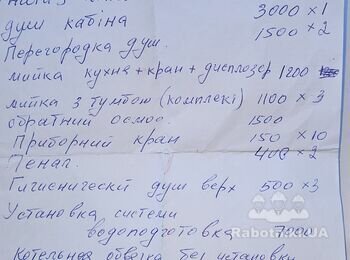 душ кабіна 3000 x 1
Перегородка душ. 1500 x 2
мийка кухня + кран + дисплозер 1200
мийка з тумбою (комплекі) 1100 x 3
обратний осмос. 1500
Приборний кран 150 x 10
Тенаг. 400 x 2
Гигиенически душ верх 500 x 3
Установка системи
водоподготовка 7000
Котельная обвязка без установки
Rabotniki.UA